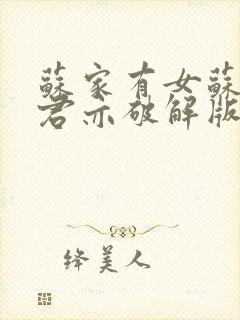 蘇家有女蘇
君亦破解版
绛美人